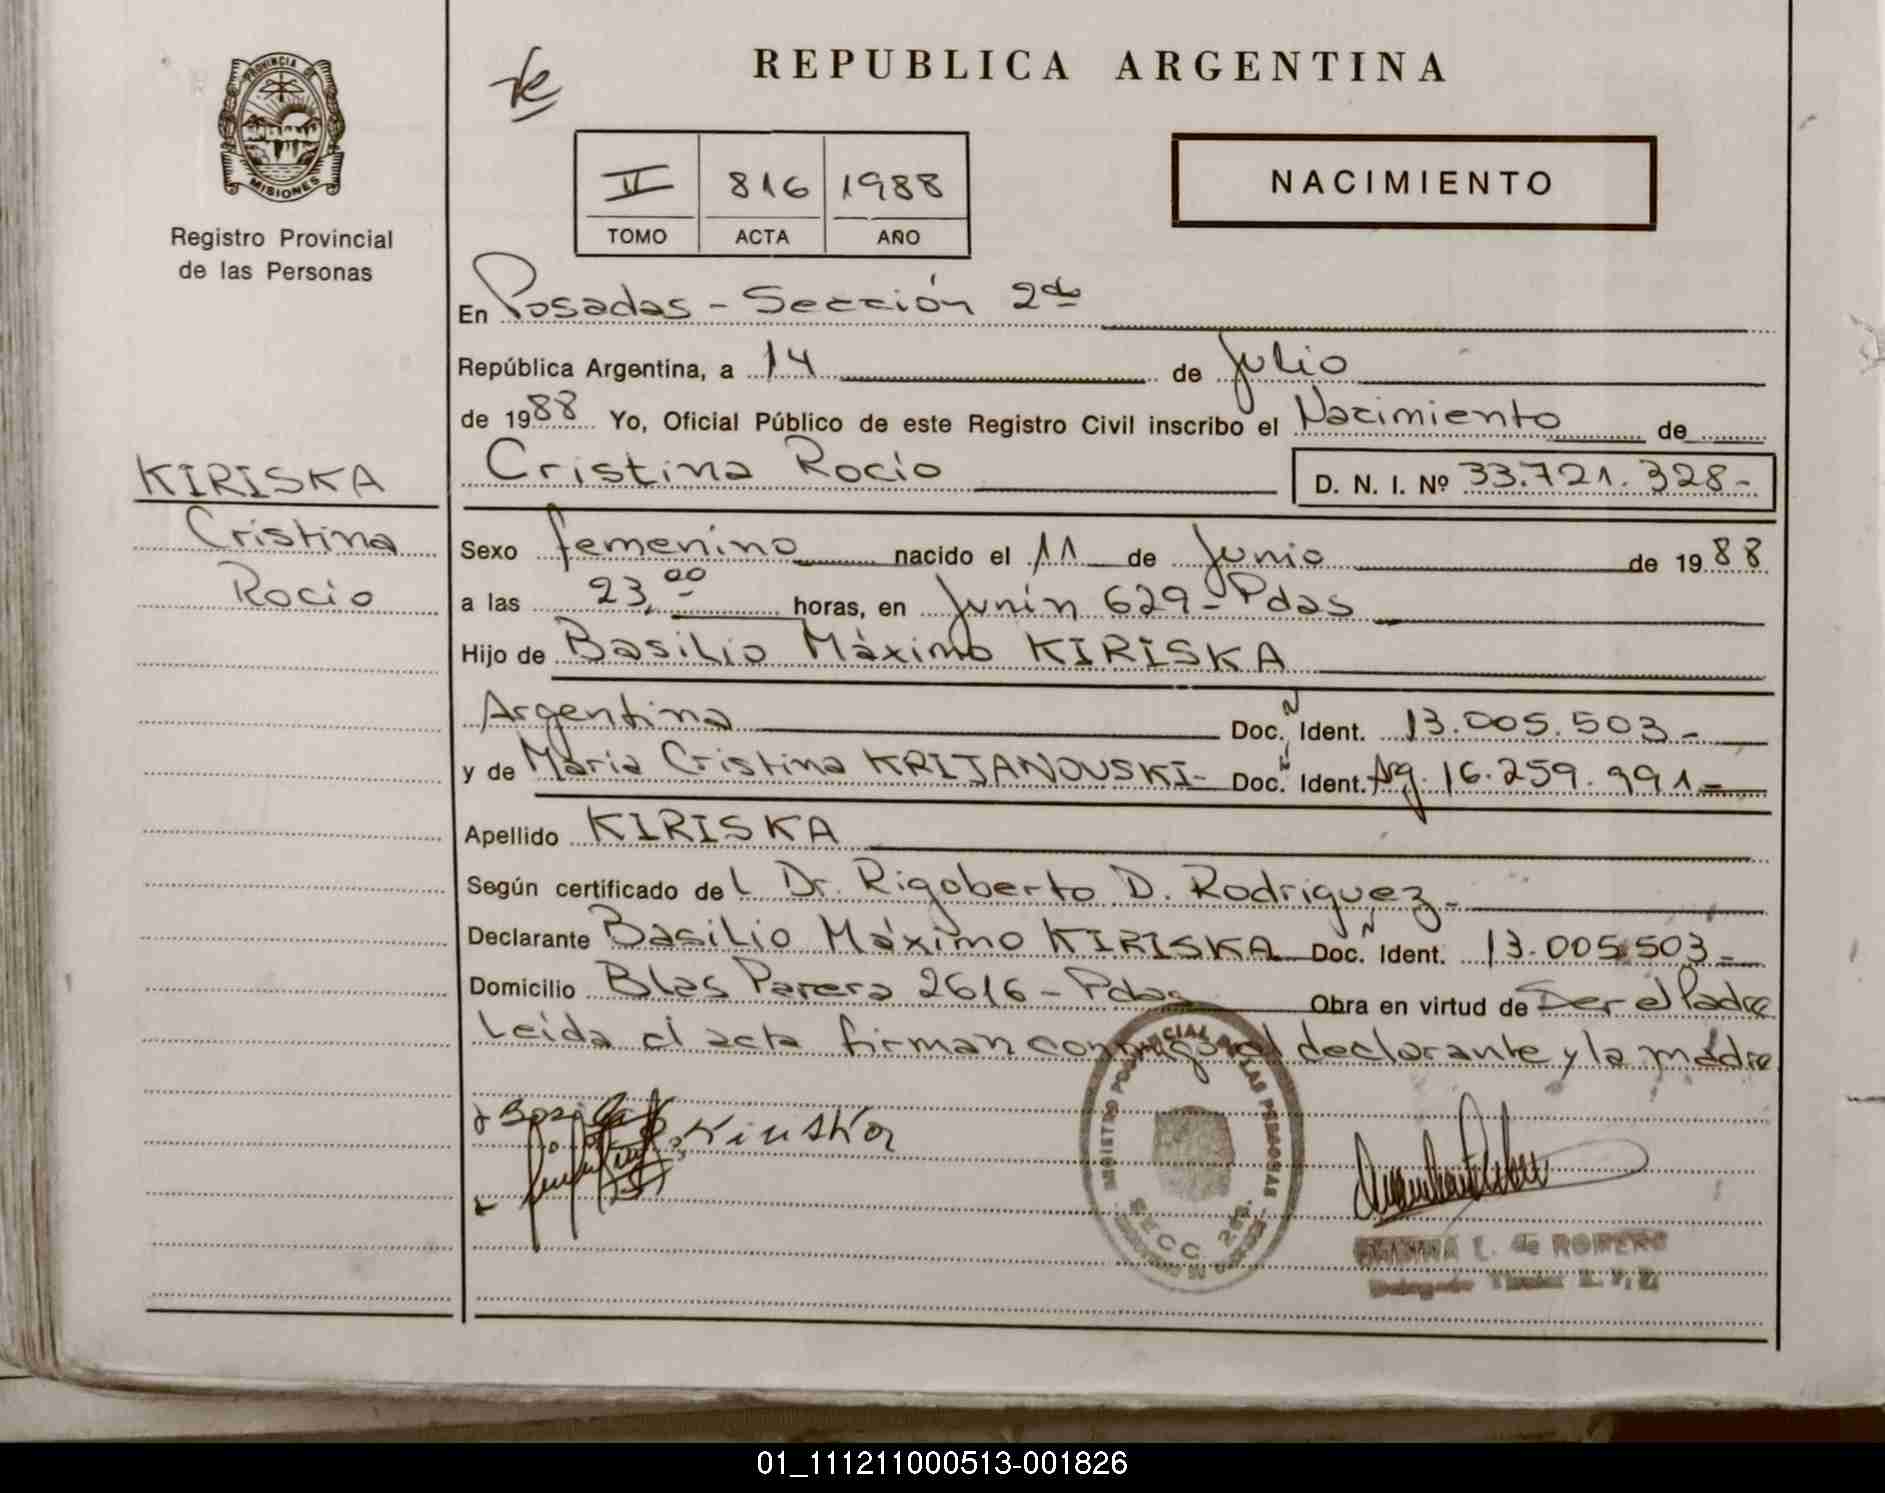 REPUBLICA ARGENTINA
PROVINCIA DE
MISIONES
Registro Provincial
de las Personas
II 816 1988
TOMO ACTA AÑO
NACIMIENTO
En Posadas - Sección 2da
República Argentina, a 14 de Julio
de 1988 Yo, Oficial Público de este Registro Civil inscribo el Nacimiento de
KIRISKA
Cristina
Rocio
Cristina Rocío D. N. I. Nº 33.721.328-
Sexo femenino nacido el 11 de Junio de 1988
a las 23,00 horas, en Junín 629 - Pdas
Hijo de Basilio Máximo KIRISKA
Argentina Doc. N Ident. 13.005.503-
y de María Cristina KRIJANOUSKI- Doc. N Ident. Arg. 16.259.991-
Apellido KIRISKA
Según certificado del Dr. Rigoberto D. Rodriguez-
Declarante Basilio Máximo KIRISKA Doc. N Ident. 13.005.503-
Domicilio Blas Parera 2616 - Pdas Obra en virtud de Ser el Padre
Leída el acta firman conmigo el declarante y la madre
REGISTRO PROVINCIAL DE LAS PERSONAS
SECC. 2da.
L. de ROMERO
01_111211000513-001826